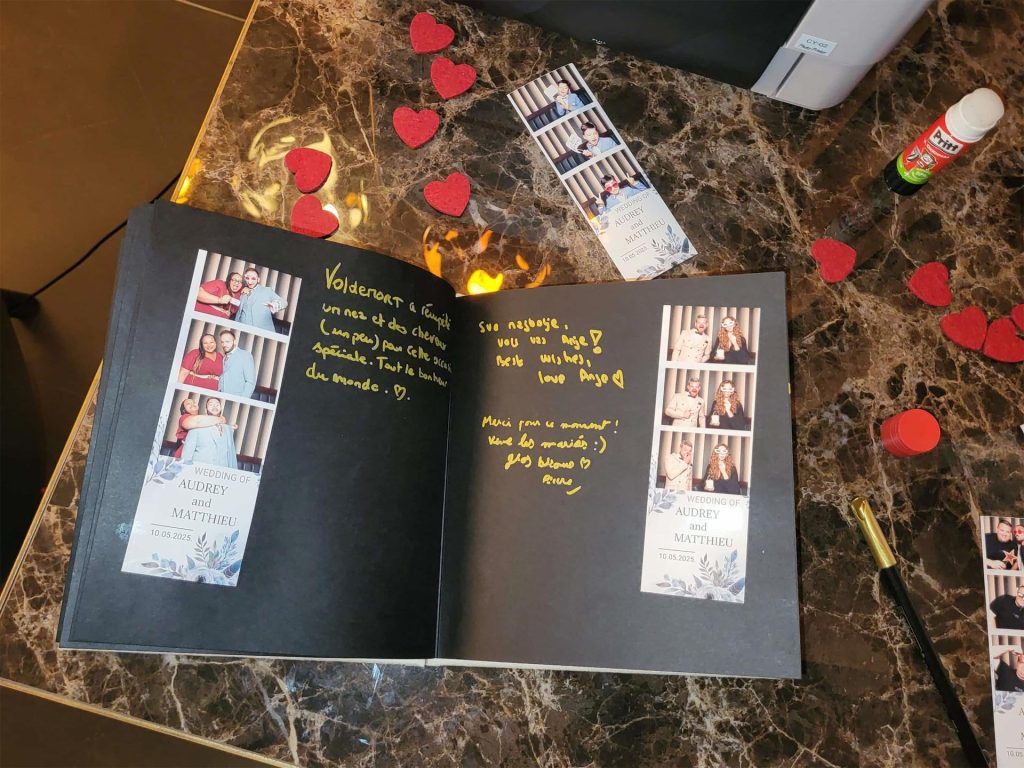 CY-02
WEDDING OF
AUDREY
and
MATTHIEU
10.05.2025
Pritt
VOLDEMORT a
un nez et des cheveux
(un peu) pour cette
spéciale. Tout le bonheur
du monde.
WEDDING OF
AUDREY
and
MATTHIEU
10.05.2025
Sve najbolje,
voli vas Anje!
Best wishes,
love Anje
Merci pour ce moment!
Vive les mariés :)
Gros bisous
WEDDING OF
AUDREY
and
MATTHIEU
10.05.2025